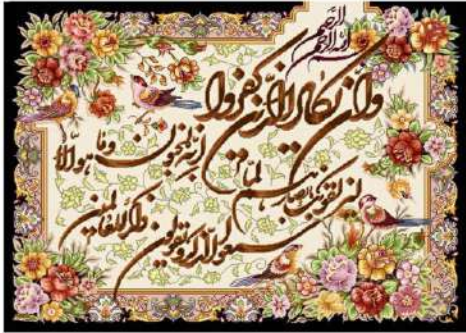 بسم الله الرحمن الرحيم
وان يكاد الذين كفروا
ليزلقونك بابصارهم لما
سمعوا الذكر ويقولون
انه لمجنون وما هو الا
ذكر للعالمين